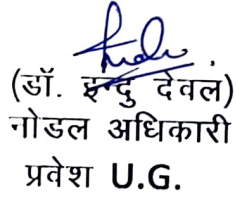 (डॉ. इन्दु देवल)
नोडल अधिकारी
प्रवेश U.G.